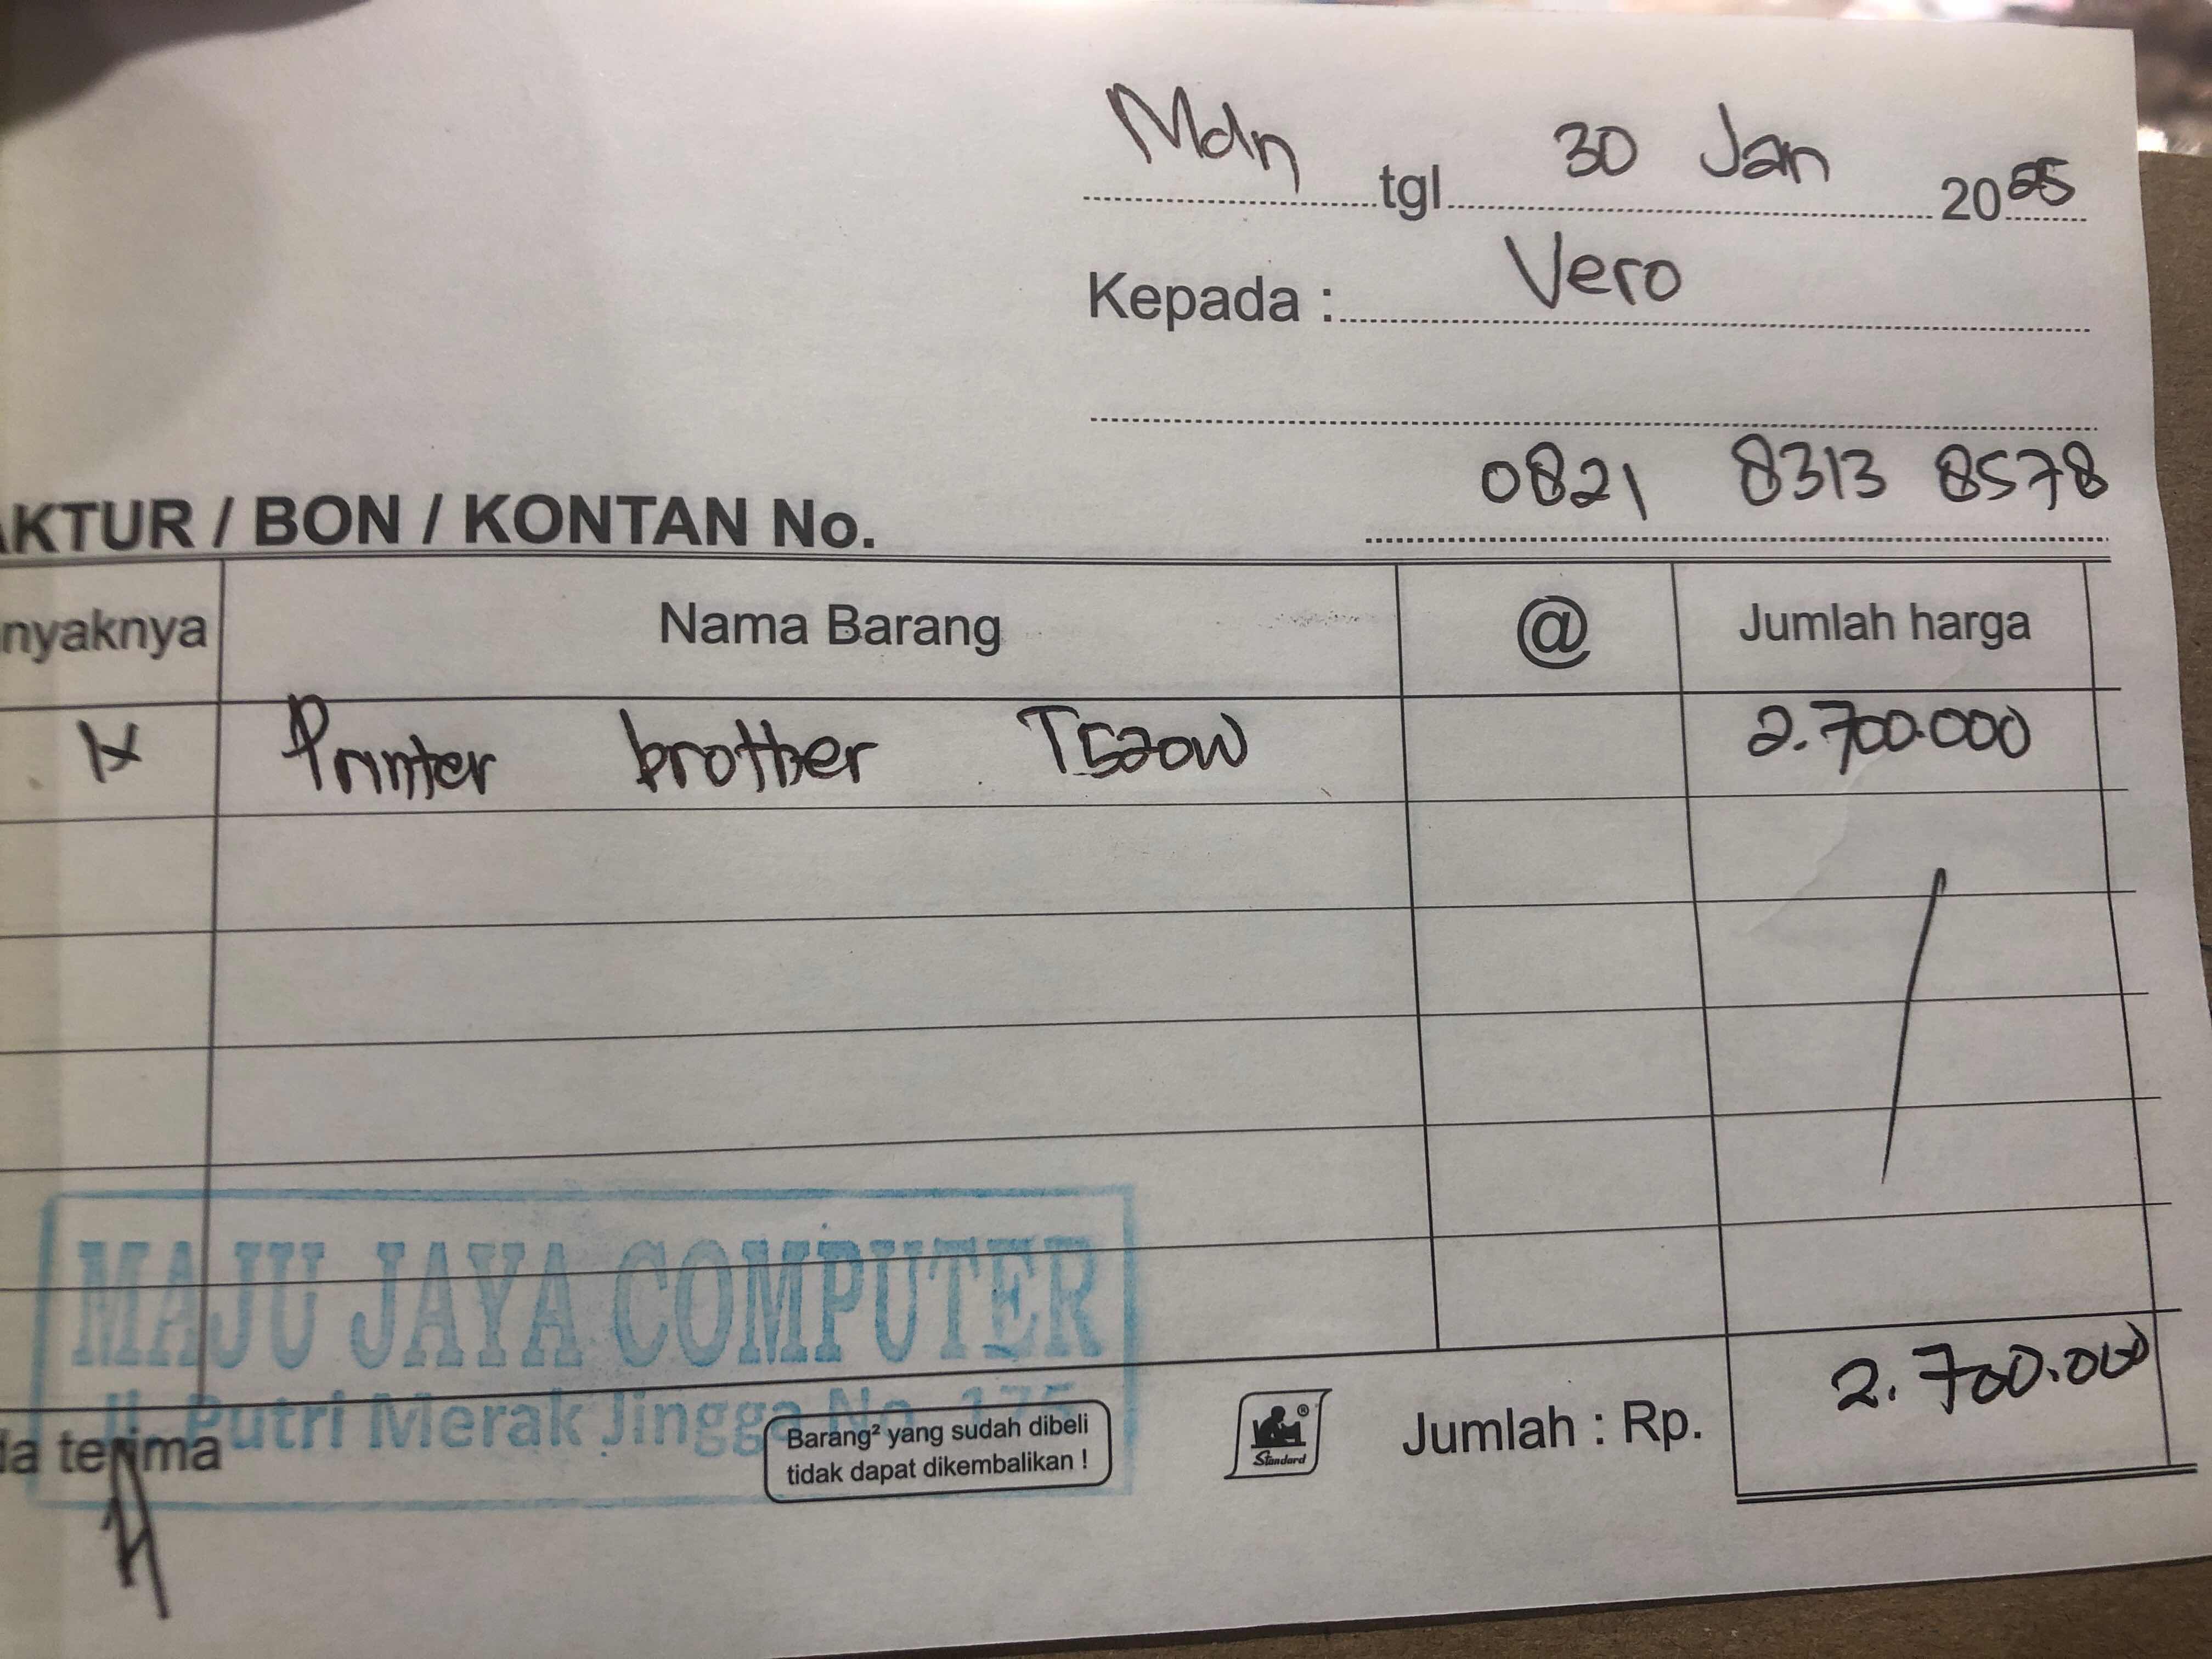 Mdn tgl 30 Jan 2025
Kepada : Vero
0821 8313 8578
AKTUR / BON / KONTAN No.
nyaknya Nama Barang @ Jumlah harga
1x Printer brother T520W 2.700.000
MAJU JAYA COMPUTER
Jl. Putri Merak Jingga No. 175
da terima
Barang² yang sudah dibeli
tidak dapat dikembalikan !
® Standard
Jumlah : Rp. 2.700.000